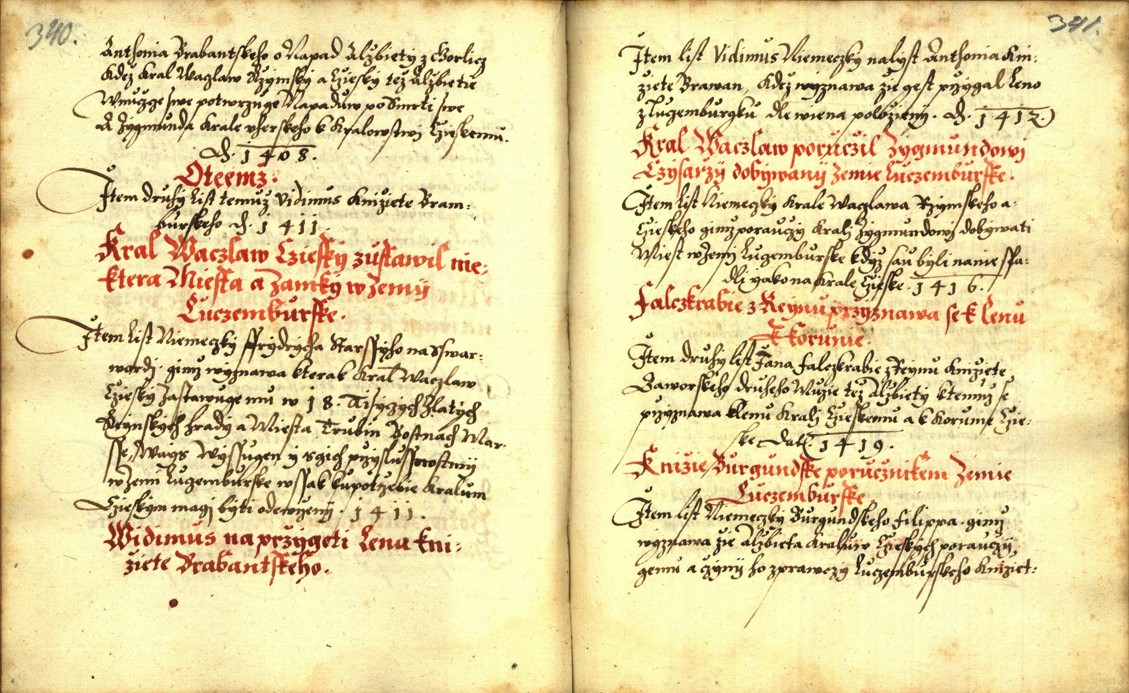 340.
Anthonia Brabantskeho o Napad Alzbiety z Gorlicz
kdez Kral Waczlaw Rzymsky a Cziesky tez Alzbietie
Wnuczge swe potwrzuge Napaduw po Smrti swe
A Zygmunda Krale Uherskeho k Kralowstwj Czieskemu.
d. 1408.
O temz.
Item druhy list temuz Vidimus Knizete Bram-
burskeho d. 1411.
Kral Waczlaw Cziesky zustawil nie-
ktera Miesta a Zamky w Zemij
Luczemburske.
Item list Niemeczky Frydrycha Starssyho na Sswar-
wardj ginz wyznawa kterak Kral Waczlaw
Cziesky Zastawuge mu w 18. Tisyczych Zlatych
Reynskych hrady a Miesta Trubin Bostnach Mar-
sse, Wags Wyssugen y s gich przyslussenstwij
w Zemi Lugemburske wssak k upotrzebie Kraluw
Czieskym magj byti odewrzeny. 1411.
Widimus na przygeti Lena kni-
ziete Brabantskeho.
341.
Item list Vidimus Niemeczky na lyst Anthonia Kni-
ziete Brawan, kdez wyznawa zie gest przygal leno
z Lugemburgku Rewiena polozieny. d. 1412)
Kral Waczlaw poruczil Zygmundowj
Czysarzy dobywanij Zemie Luczemburske.
Item list Niemeczky Krale Waczlawa Rzymskeho a-
Czieskeho gimz porauczy Kralj Zygmundowj dobywati
Miest w Zemj Lugemburske kdyz sau byli na nie spa-
dli yako na Krale Czieske. 1416.
Falczkrabie z Reynu przyznawa se k lenu
k Korunie.
Item druhy list Jana falczkrabie z Reynu Knizete
Baworskeho druheho Muzie tez Alzbiety k temuz se
przyznawa k lenu Kralj Czieskemu a k Korunie Czie-
ske Datz. 1419.
Knizie Burgundske porucznikem Zemie
Luczemburske.
Item list Niemeczky Burgundskeho Filippa. gimz
wyznawa zie Alzbieta Kraluw Czieskych porauczy
gemu a czyny ho zprawczy Luczemburskeho Kniezet-